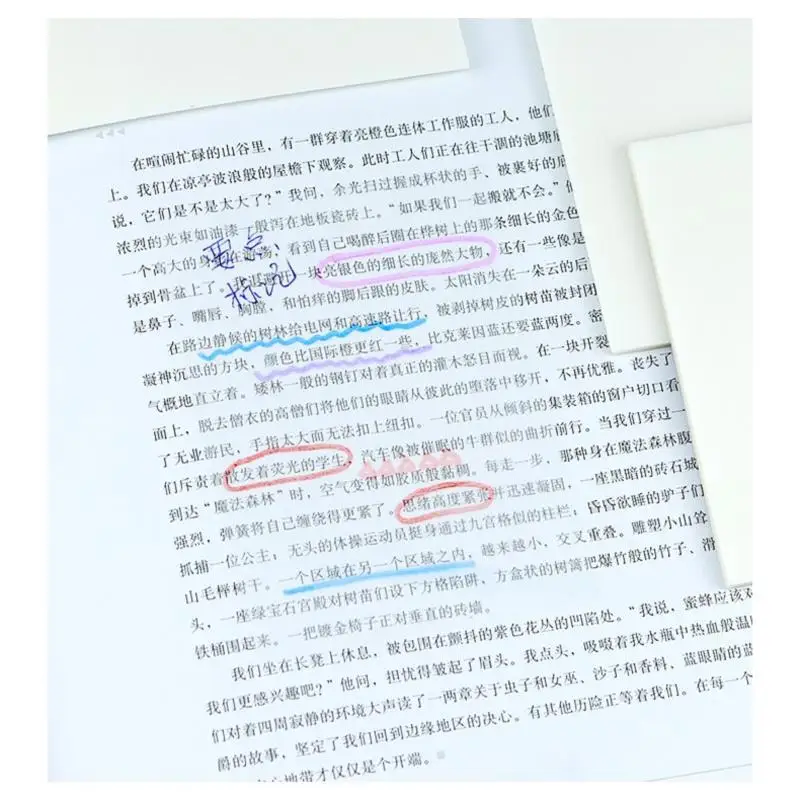 在喧闹忙碌的山谷里，有一群穿着亮橙色连体工作服的工人，他们
上。我们在凉亭波浪般的屋檐下观察。此时工人们正在往干涸的池塘底
说，它们是不是太大了？”我问，余光扫过握成杯状的手、被裹好的
浓烈的光束如油漆一般泻在地板瓷砖上。“如果我们一起搬就不会。”
一个高大的身 荡，看到自己喝醉后圈在桦树上的那条细长的金色
掉到骨盆上了。 一块亮银色的细长的庞然大物，还有一些像是
要点、
标记
是鼻子、嘴唇、胸膛，和怕痒的脚后跟的皮肤。太阳消失在一朵云的后
在路边静候的树林给电网和高速路让行，被剥掉树皮的树苗被封闭
凝神沉思的方块，颜色比国际橙更红一些，比克莱因蓝还要蓝两度。密
气概地直立着。矮林一般的钢钉对着真正的灌木怒目而视。在一块开裂
面上，脱去僧衣的高僧们将他们的眼睛从彼此的堕落中移开，不再优雅。丧失了
了无业游民，手指太大而无法扣上纽扣。一位官员从倾斜的集装箱的窗户切口看
们斥责着散发着荧光的学生，汽车像被催眠的牛群似的曲折前行。当我们穿过一
到达“魔法森林”时，空气变得如胶质般黏稠。每走一步，那种身在魔法森林腹
强烈，弹簧将自己缠绕得更紧了。思绪高度紧张并迅速凝固，一座黑暗的砖石城
抓捕一位公主；无头的体操运动员挺身通过九宫格似的柱栏；昏昏欲睡的驴子们
山毛榉树干。一个区域在另一个区域之内，越来越小，交叉重叠。雕塑小山耸
头，一座绿宝石宫殿对树苗们设下方格陷阱，方盒状的树篱把爆竹般的竹子、滑
铁桶围起来。一把镀金椅子正对垂直的砖墙。
我们坐在长凳上休息，被包围在颤抖的紫色花丛的凹陷处。“我说，蜜蜂应该对
我们更感兴趣吧？”他问，担忧得皱起了眉头。我点头，吸啜着我水瓶中热血般温
们对着四周寂静的环境大声读了一两章关于虫子和女巫、沙子和香料、蓝眼睛的蓝
爵的故事，坚定了我们回到边缘地区的决心。有其他历险正等着我们。在每一个
心地带才仅仅是个开端。